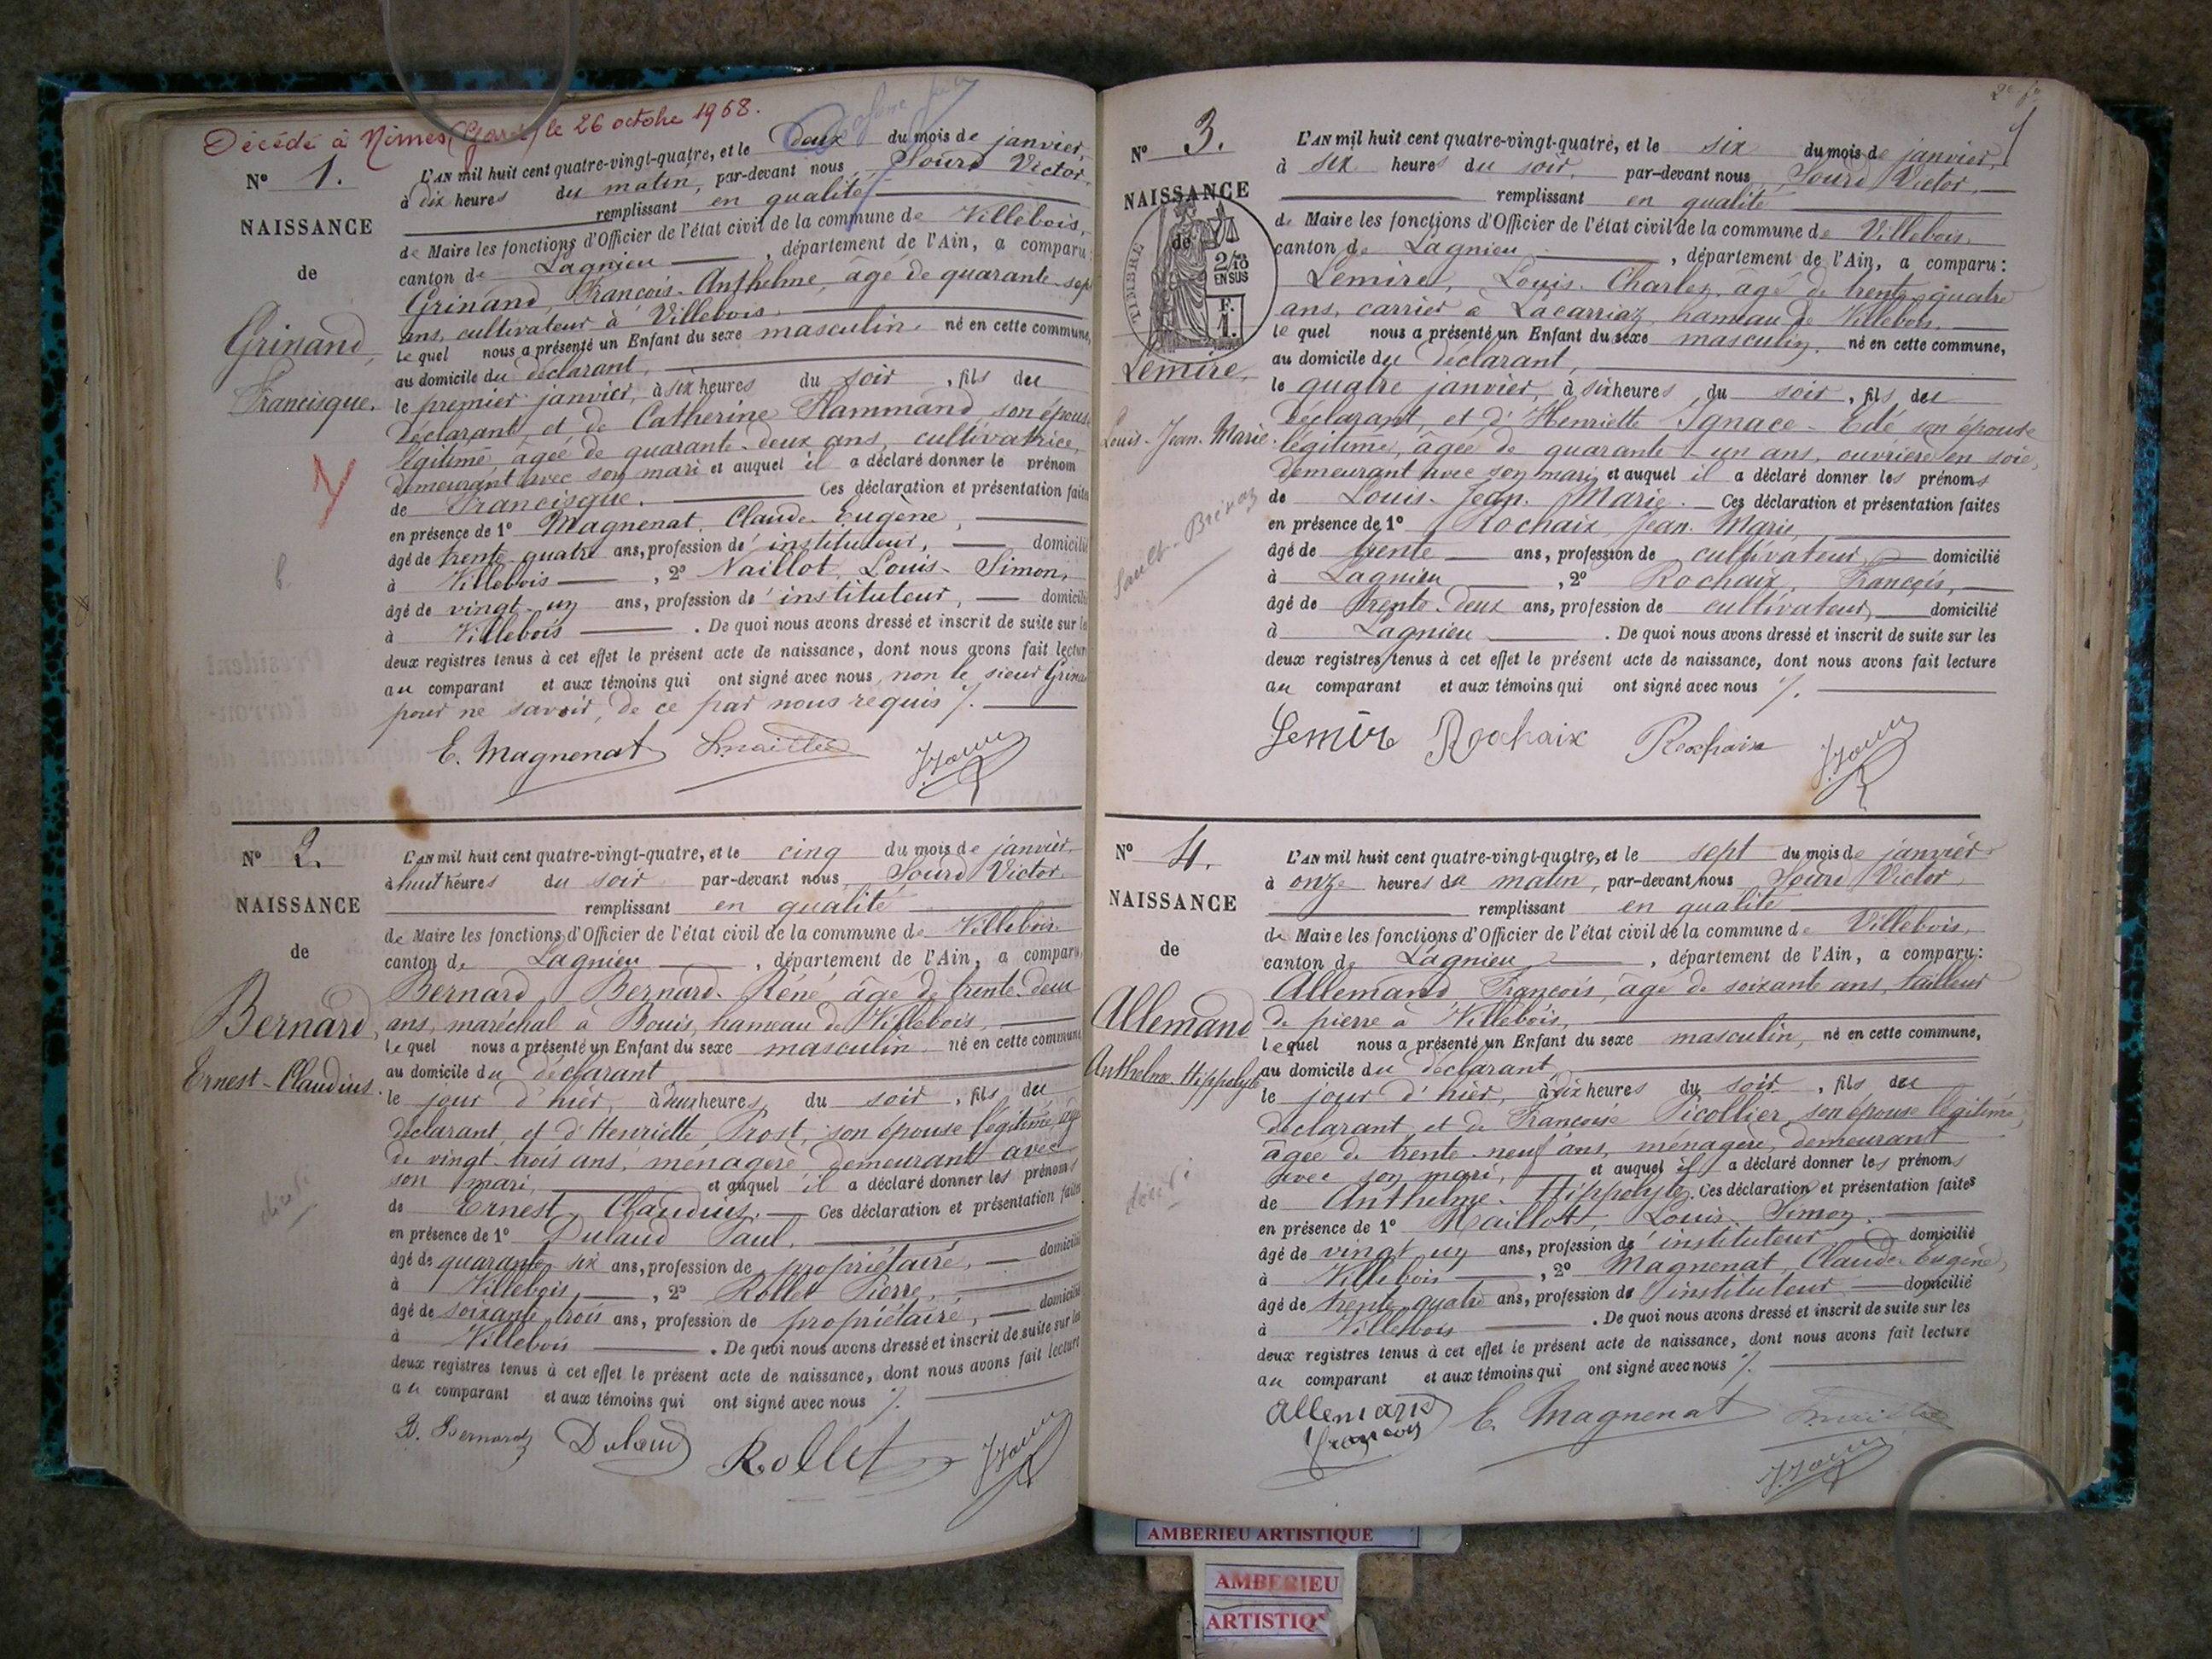 Décédé à Nîmes (Gard) le 26 octobre 1968.
N° 1.
NAISSANCE
de
Grinand,
Francisque.
L'AN mil huit cent quatre-vingt-quatre, et le Deux du mois de janvier,
à dix heures du matin, par-devant nous, Sourd Victor,
remplissant en qualité
de Maire les fonctions d'Officier de l'état civil de la commune de Villebois,
canton de Lagnieu, département de l'Ain, a comparu:
Grinand, François-Anthelme, âgé de quarante-sept
ans, cultivateur à Villebois.
le quel nous a présenté un Enfant du sexe masculin, né en cette commune,
au domicile du déclarant,
le premier janvier, à six heures du soir, fils du
déclarant et de Catherine Flammand, son épouse
légitime, âgée de quarante-deux ans, cultivatrice,
demeurant avec son mari et auquel il a déclaré donner le prénom
de Francisque. Ces déclaration et présentation faites
en présence de 1° Magnenat, Claude-Eugène,
âgé de trente-quatre ans, profession d'instituteur, domicilié
à Villebois, 2° Naillot, Louis-Simon,
âgé de vingt-un ans, profession d'instituteur, domicilié
à Villebois. De quoi nous avons dressé et inscrit de suite sur les
deux registres tenus à cet effet le présent acte de naissance, dont nous avons fait lecture
au comparant et aux témoins qui ont signé avec nous, non le sieur Grinand
pour ne savoir, de ce par nous requis ⁒.
E. Magnenat
N° 2.
NAISSANCE
de
Bernard,
Ernest-Claudius.
L'AN mil huit cent quatre-vingt-quatre, et le cinq du mois de janvier,
à huit heures du soir par-devant nous, Sourd Victor,
remplissant en qualité
de Maire les fonctions d'Officier de l'état civil de la commune de Villebois
canton de Lagnieu, département de l'Ain, a comparu,
Bernard, Bernard-René âgé de trente-deux
ans, maréchal à Bouis, hameau de Villebois,
le quel nous a présenté un Enfant du sexe masculin né en cette commune
au domicile du déclarant
le jour d'hier, à deux heures du soir, fils du
déclarant, et d'Henriette Prost, son épouse légitime, âgée
de vingt-trois ans, ménagère, demeurant avec
son mari, et auquel il a déclaré donner les prénoms
de Ernest-Claudius. Ces déclaration et présentation faites
en présence de 1° Dulaud Paul,
âgé de quarante-six ans, profession de propriétaire, domicilié
à Villebois, 2° Rollet Pierre,
âgé de soixante-trois ans, profession de propriétaire, domicilié
à Villebois. De quoi nous avons dressé et inscrit de suite sur les
deux registres tenus à cet effet le présent acte de naissance, dont nous avons fait lecture
au comparant et aux témoins qui ont signé avec nous ⁒.
B. Bernard Dulaud Rollet
N° 3.
NAISSANCE
de
TIMBRE
2/10
EN SUS
F.
1.
Lemire,
Louis-Jean-Marie.
Sault-Brénaz
L'AN mil huit cent quatre-vingt-quatre, et le six du mois de janvier,
à six heures du soir, par-devant nous, Sourd Victor,
remplissant en qualité
de Maire les fonctions d'Officier de l'état civil de la commune de Villebois,
canton de Lagnieu, département de l'Ain, a comparu:
Lemire, Louis-Charles, âgé de trente-quatre
ans, carrier à Lacarriaz, hameau de Villebois,
le quel nous a présenté un Enfant du sexe masculin, né en cette commune,
au domicile du déclarant,
le quatre janvier, à six heures du soir, fils du
déclarant, et d'Henriette Ignace-Edé son épouse
légitime, âgée de quarante-un ans, ouvrière en soie,
demeurant avec son mari et auquel il a déclaré donner les prénoms
de Louis-Jean-Marie. Ces déclaration et présentation faites
en présence de 1° Rochaix, Jean-Marie,
âgé de trente ans, profession de cultivateur, domicilié
à Lagnieu, 2° Rochaix, François,
âgé de trente-deux ans, profession de cultivateur, domicilié
à Lagnieu. De quoi nous avons dressé et inscrit de suite sur les
deux registres tenus à cet effet le présent acte de naissance, dont nous avons fait lecture
au comparant et aux témoins qui ont signé avec nous ⁒.
Lemire Rochaix Rochaix
N° 4.
NAISSANCE
de
Allemand
Anthelme-Hippolyte
L'AN mil huit cent quatre-vingt-quatre, et le sept du mois de janvier
à onze heures du matin, par-devant nous Sourd Victor,
remplissant en qualité
de Maire les fonctions d'Officier de l'état civil de la commune de Villebois,
canton de Lagnieu, département de l'Ain, a comparu:
Allemand François, âgé de soixante ans, tailleur
de pierre à Villebois,
le quel nous a présenté un Enfant du sexe masculin, né en cette commune,
au domicile du déclarant
le jour d'hier, à dix heures du soir, fils du
déclarant et de Françoise Picollier, son épouse légitime,
âgée de trente-neuf ans, ménagère, demeurant
avec son mari, et auquel il a déclaré donner les prénoms
de Anthelme-Hippolyte. Ces déclaration et présentation faites
en présence de 1° Naillot, Louis-Simon,
âgé de vingt-un ans, profession d'instituteur, domicilié
à Villebois, 2° Magnenat, Claude-Eugène,
âgé de trente-quatre ans, profession d'instituteur domicilié
à Villebois. De quoi nous avons dressé et inscrit de suite sur les
deux registres tenus à cet effet le présent acte de naissance, dont nous avons fait lecture
au comparant et aux témoins qui ont signé avec nous ⁒.
Allemand E. Magnenat
françois
AMBERIEU ARTISTIQUE
AMBERIEU
ARTISTIQ